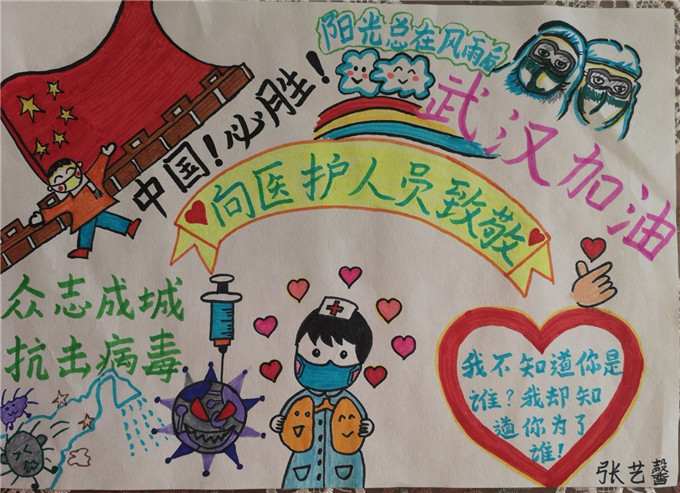 阳光总在风雨后
中国！必胜！
武汉加油
向医护人员致敬
众志成城
抗击病毒
我不知道你是
谁？我却知
道你为了
谁！
张艺馨